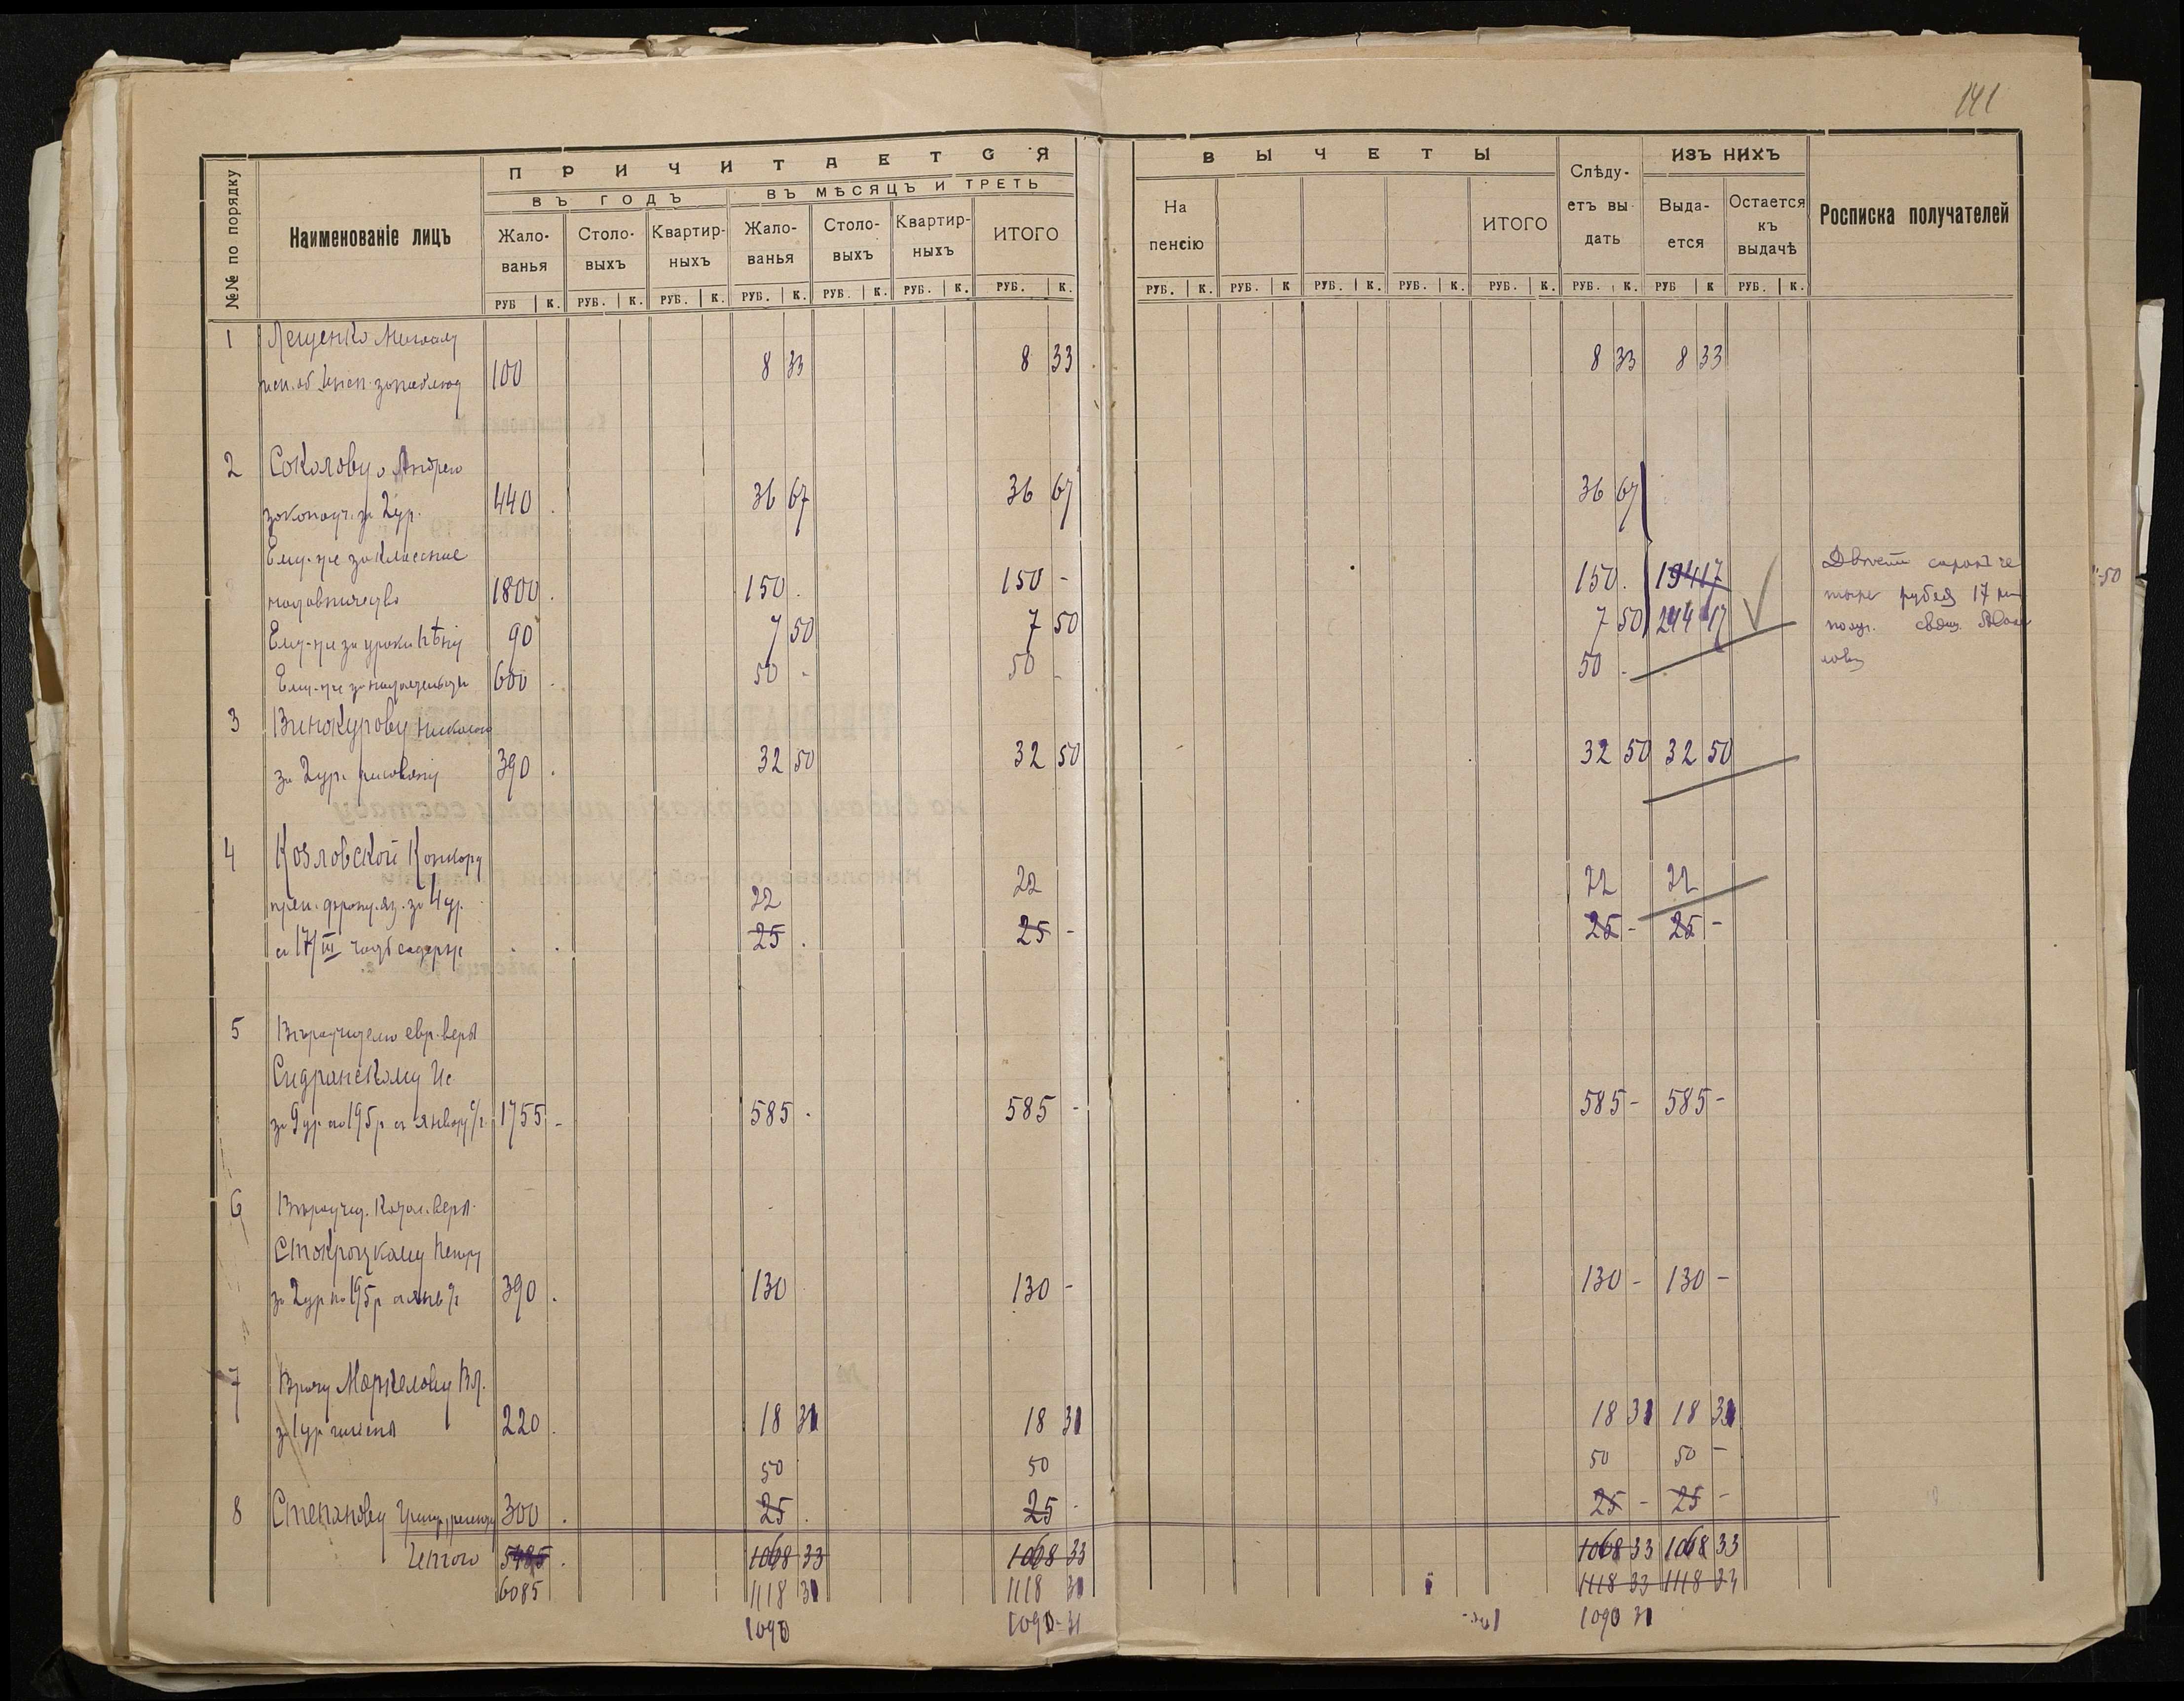 141
ПРИЧИТАЕТСЯ
ВЫЧЕТЫ
ИЗЪ НИХЪ
№№ по порядку
Наименованіе лицъ
ВЪ ГОДЪ
ВЪ МѢСЯЦЪ И ТРЕТЬ
Жало-ванья
Столо-выхъ
Квартир-ныхъ
Жало-ванья
Столо-выхъ
Квартир-ныхъ
ИТОГО
На пенсію
ИТОГО
Слѣду-етъ вы-дать
Выда-ется
Остается къ выдачѣ
Росписка получателей
РУБ К. РУБ. К. РУБ. К. РУБ. К. РУБ. К. РУБ. К. РУБ. К. РУБ. К. РУБ. К РУБ. К. РУБ. К. РУБ. К. РУБ. К. РУБ К РУБ. К.
1 Лещенко
100 8 33 8 33 8 33 8 33
2 Соколову о Андрею
законоуч. за 2 ур. 440 36 67 36 67 36 67
Ему-же за классное
1800 150 150 - 150 194 17
Ему-же за уроки пѣнія 90 7 50 7 50 7 50 244 17
Ему-же за 600 50 - 50 - 50 -
Двѣсти сорокъ че
тыре рубля 17 
получ. свящ.
50
3 Винокурову Николаю
за 2 ур. рисованія 390 32 50 32 50 32 50 32 50
4 Козловской
преп. франц. яз. за 4 ур. 22 22 22 22
с 17/III 25 25 - 25 - 25 -
5 Вѣроучителю евр. веры
Сидранскому Ис
за 9 ур. по 195 р. с января с/г 1755 - 585 585 - 585 - 585 -
6 Вѣроучит. Катол. веры
Стокроцкому Петру
за 2 ур по 195 р с янв с/г 390 130 130 - 130 - 130 -
7 Врачу Маркелову Вл.
за 1 ур гигіены 220 18 31 18 31 18 31 18 31
50 50 50 50 -
8 Степанову 300 25 25 - 25 - 25 -
Итого 5485 1068 33 1068 33 1068 33 1068 33
6085 1118 31 1118 31 1118 33 1118 33
1090 1090-31 1090 31